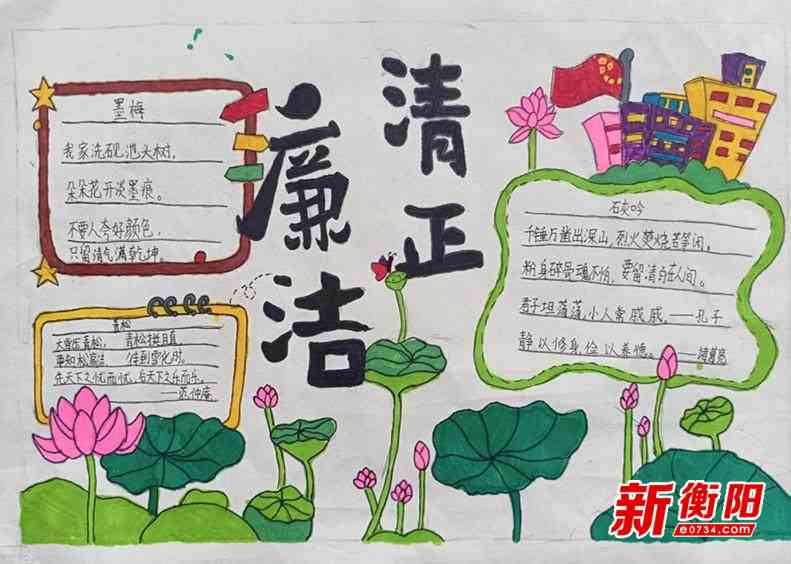 清正
廉洁
墨梅
我家洗砚池头树，
朵朵花开淡墨痕。
不要人夸好颜色，
只留清气满乾坤。
青松
大雪压青松， 青松挺且直
要知松高洁 待到雪化时。
先天下之忧而忧，后天下之乐而乐。
——范仲淹
石灰吟
千锤万凿出深山，烈火焚烧若等闲。
粉身碎骨魂不怕，要留清白在人间。
君子坦荡荡，小人常戚戚。——孔子
静以修身俭以养德。——诸葛亮
新衡阳
e0734.com